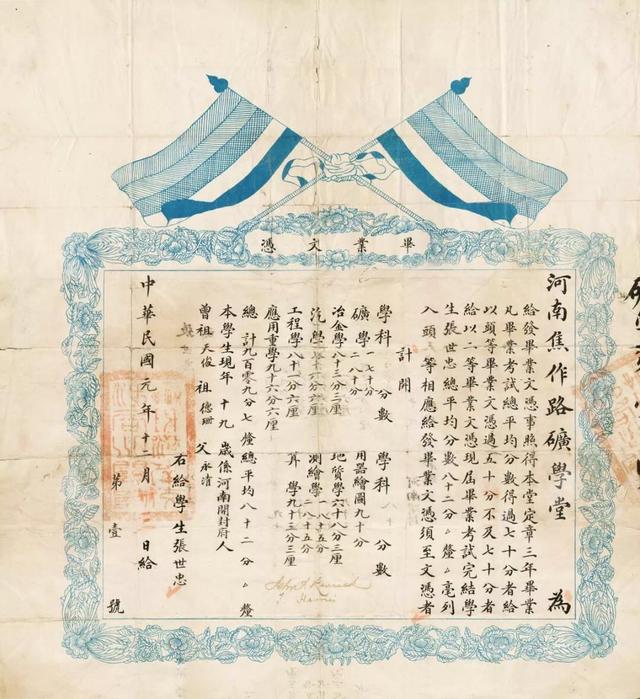 畢業文憑
河南焦作路礦學堂 為
給發畢業文憑事照得本堂定章三年畢業
凡畢業考試總平均分數得過七十分者給
以頭等畢業文憑過五十分不及七十分者
給以二等畢業文憑現屆畢業考試完結學
生張世忠總平均分數八十二分△釐△毫列
入頭等相應給發畢業文憑須至文憑者
計開
學科 分數 學科 分數
礦學 一七十分 二八十分 用器繪圖九十分
冶金學八十三分三厘 地質學六十八分三厘
汽學 十六分六厘 測繪學 八十五分 二八十五分
工程學八十一分六厘 算學九十三分三厘
應用重學九十六分六厘
總計九百零九分七釐總平均八十二分△釐
本學生現年十九歲係河南開封府人
曾祖天俊 祖德珊 父永清
右給學生張世忠
中華民國元年十二月 日給
第壹號